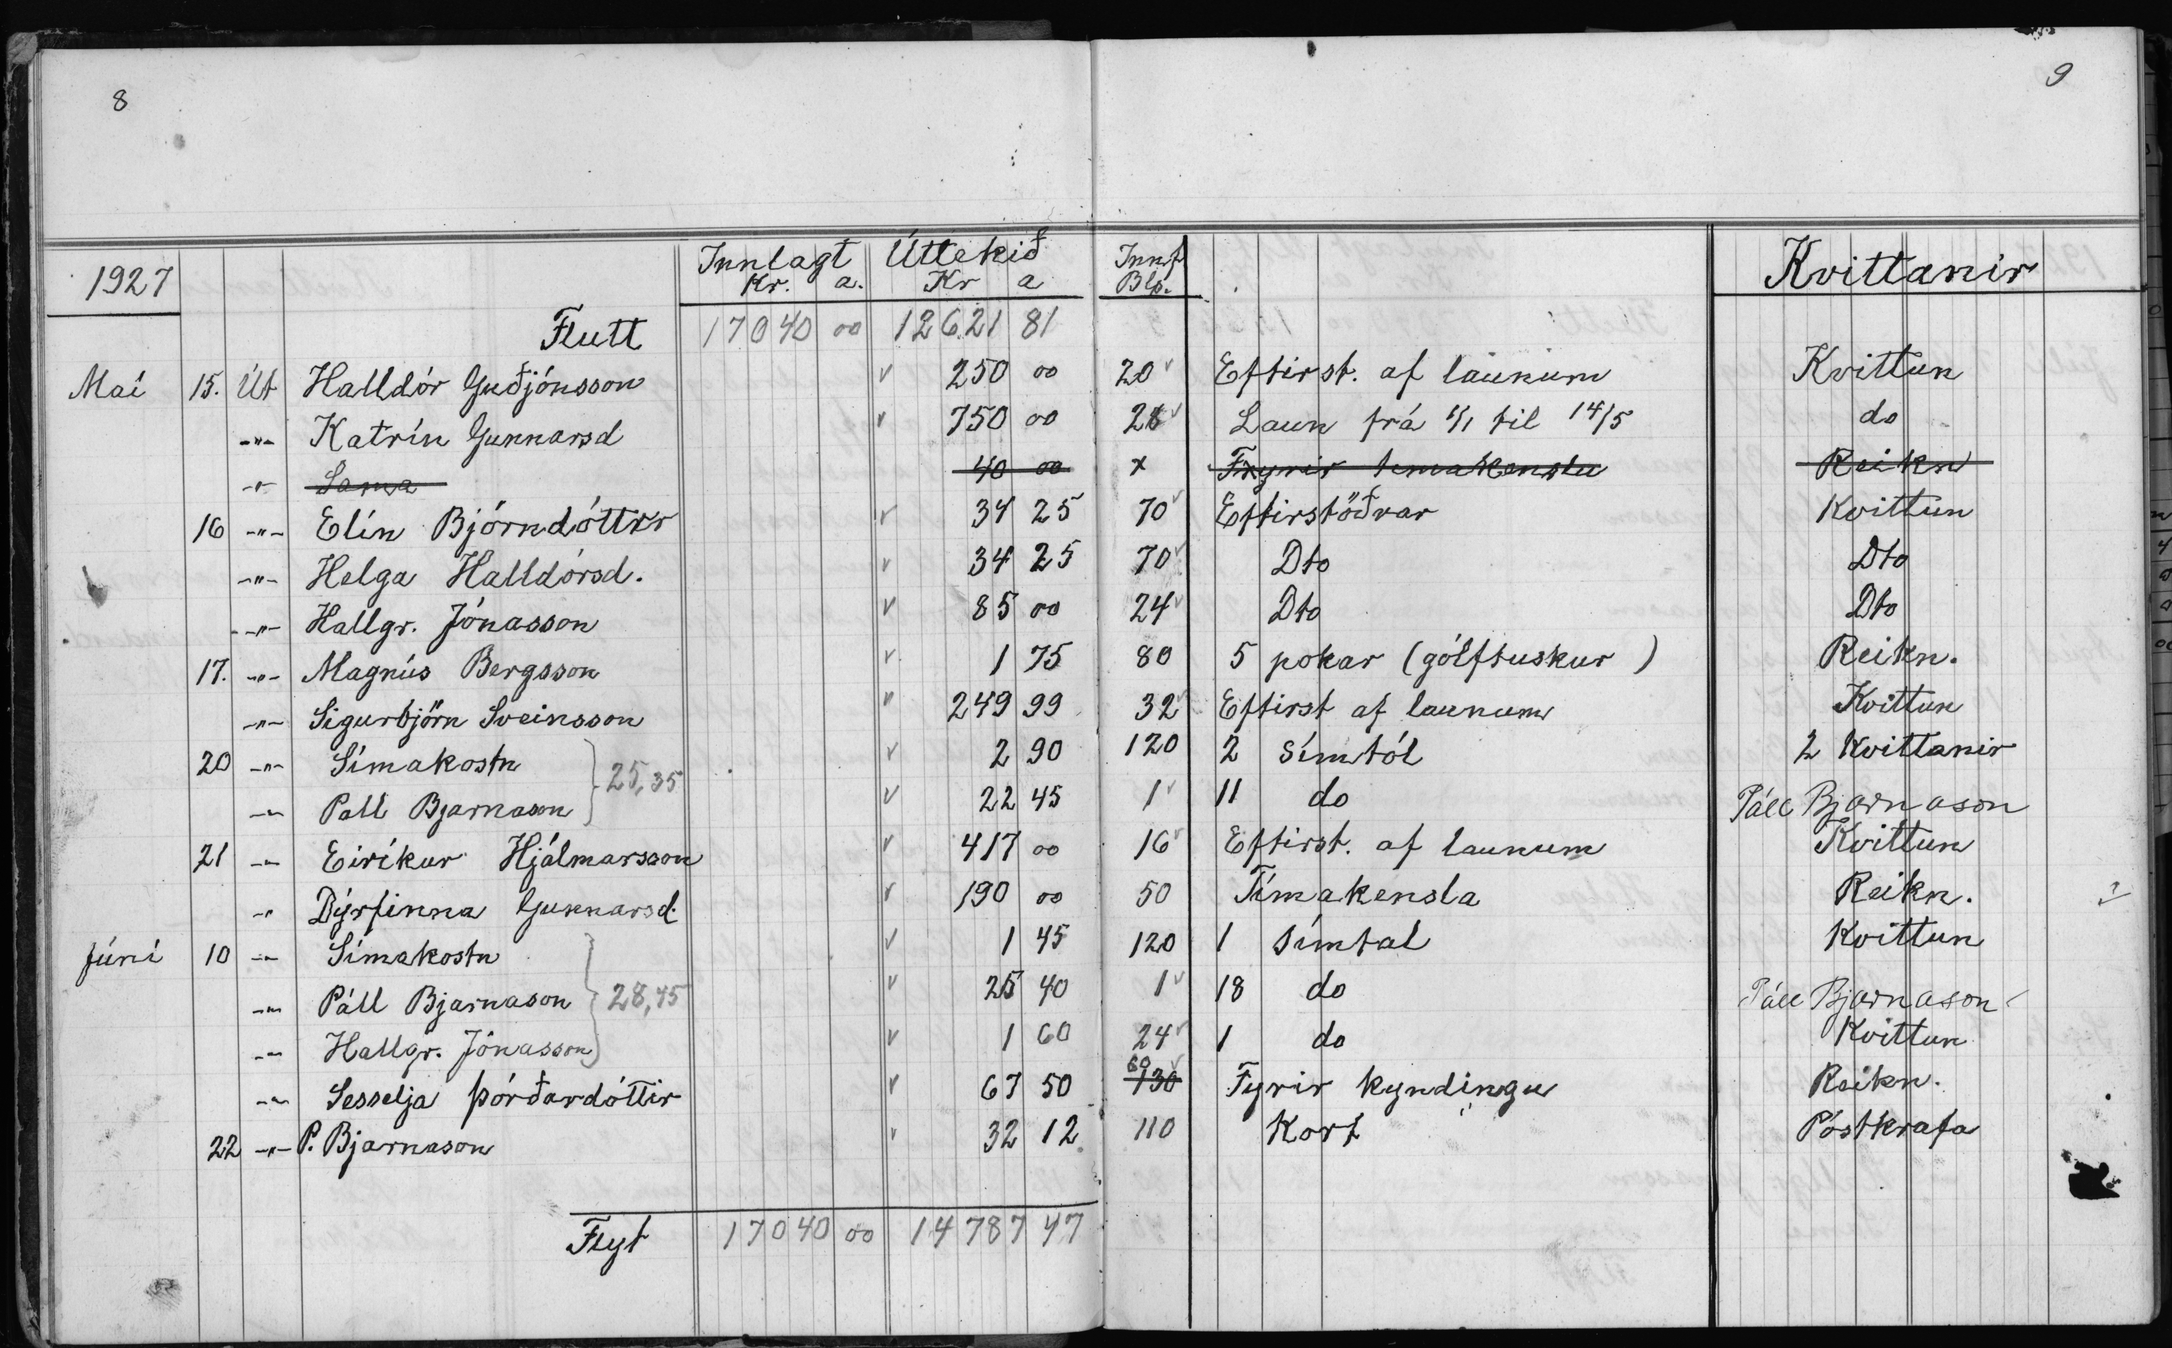 8
9
1927 Innlagt Úttekið Innf. Kvittanir
Kr. a. Kr a Blp.
Flutt 17040 00 12621 81
Maí 15. Út Halldór Guðjónsson 250 00 20 Eftirst. af launum Kvittun
-"- Katrín Gunnarsd 750 00 28 Laun frá 1/1 til 14/5 do
-"- Sama 40 00 x Fyrir tímakenslu Reikn
16 -"- Elín Björndóttir 34 25 70 Eftirstöðvar Kvittun
-"- Helga Halldórsd. 34 25 70 Dto Dto
-"- Hallgr. Jónasson 85 00 24 Dto Dto
17. -"- Magnús Bergsson 1 75 80 5 pokar (gólftuskur) Reikn.
-"- Sigurbjörn Sveinsson 249 99 32 Eftirst af launum Kvittun
20 -"- Símakostn 2 90 120 2 símtöl 2 Kvittanir
25,35
-"- Pall Bjarnason 22 45 1 11 do Páll Bjarnason
21 -"- Eiríkur Hjálmarsson 417 00 16 Eftirst. af launum Kvittun
-"- Dýrfinna Gunnarsd. 190 00 50 Tímakensla Reikn.
Júní 10 -"- Símakostn 1 45 120 1 símtal Kvittun
-"- Páll Bjarnason 28,45 25 40 1 18 do Páll Bjarnason
-"- Hallgr. Jónasson 1 60 24 1 do Kvittun
60
-"- Sesselja Þórðardóttir 67 50 130 Fyrir kyndingu Reikn.
22 -"- P. Bjarnason 32 12 110 Kort Póstkrafa
Flyt 17040 00 14787 47